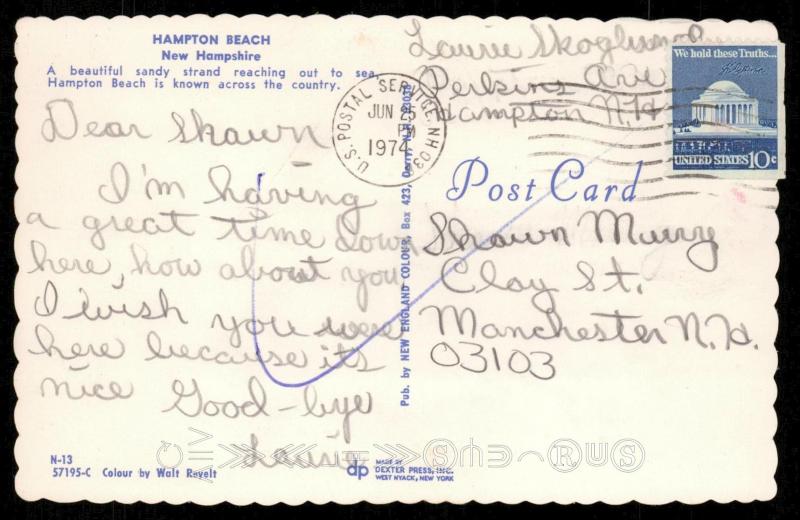 HAMPTON BEACH
New Hampshire
A beautiful sandy strand reaching out to sea,
Hampton Beach is known across the country.
Dear Shawn
I'm having
a great time down
here, how about you
I wish you were
here because its
nice Good-bye
Laurie
N-13
57195-C Colour by Walt Revelt
Pub. by NEW ENGLAND COLOUR, Box 423, Derry, N.H. 03038
dp
MADE BY
DEXTER PRESS, INC.
WEST NYACK, NEW YORK
Laurie
Perkins Ave
Hampton N.H
U.S. POSTAL SERVICE, NH 03
JUN 25
PM
1974
We hold these Truths...
UNITED STATES 10c
Post Card
Shawn Murry
Clay St.
Manchester N.H.
03103